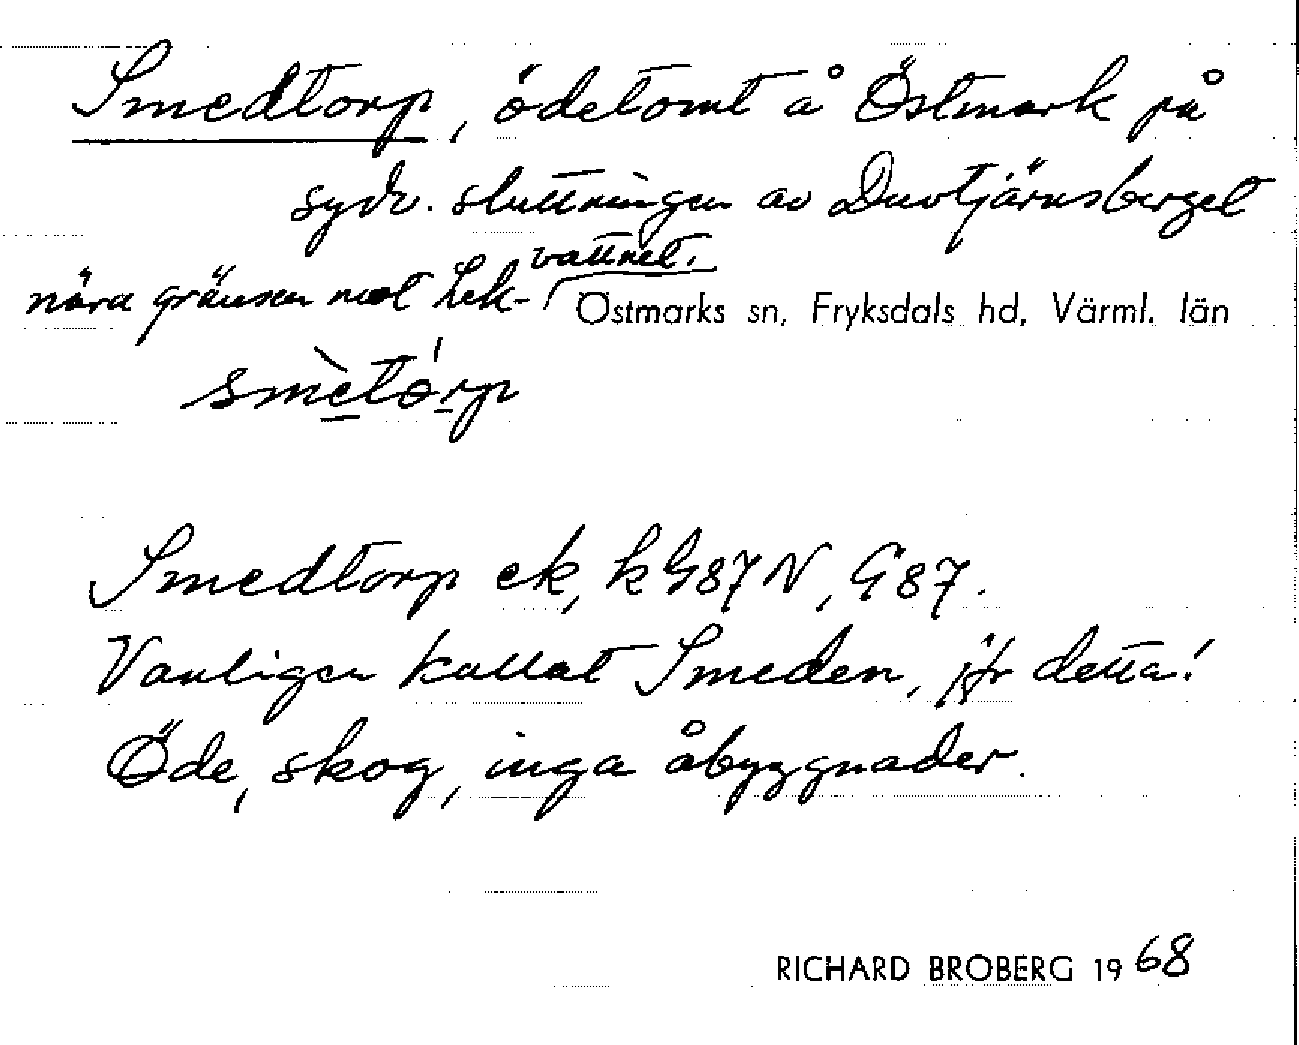 Smedtorp, ödetomt å Östmark på
sydv. sluttningen av Duvtjärnsberget
nära gränsen mot Lek-vattnet.
Östmarks sn, Fryksdals hd, Värml. län
smètórp
Smedtorp ek, k G87N, G87.
Vanligen kallat Smeden, jfr detta!
Öde, skog, inga åbyggnader.
RICHARD BROBERG 1968